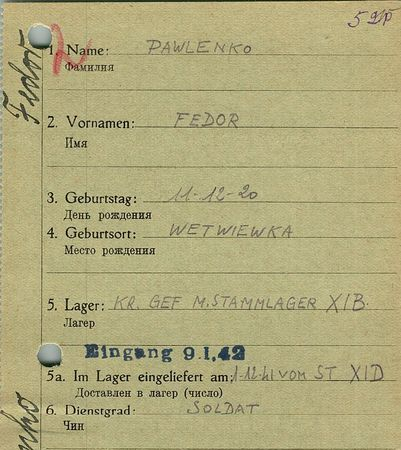 5 21P
1. Name: PAWLENKO
Фамилия
Fedor
2. Vornamen: FEDOR
Имя
3. Geburtstag: 11-12-20
День рождения
4. Geburtsort: WETWIEWKA
Место рождения
5. Lager: KR. GEF M. STAMMLAGER XI B.
Лагер
Eingang 9.1.42
5a. Im Lager eingeliefert am: 1-12-41 VOM ST XI D
Доставлен в лагер (число)
6. Dienstgrad: SOLDAT
Чин
nko